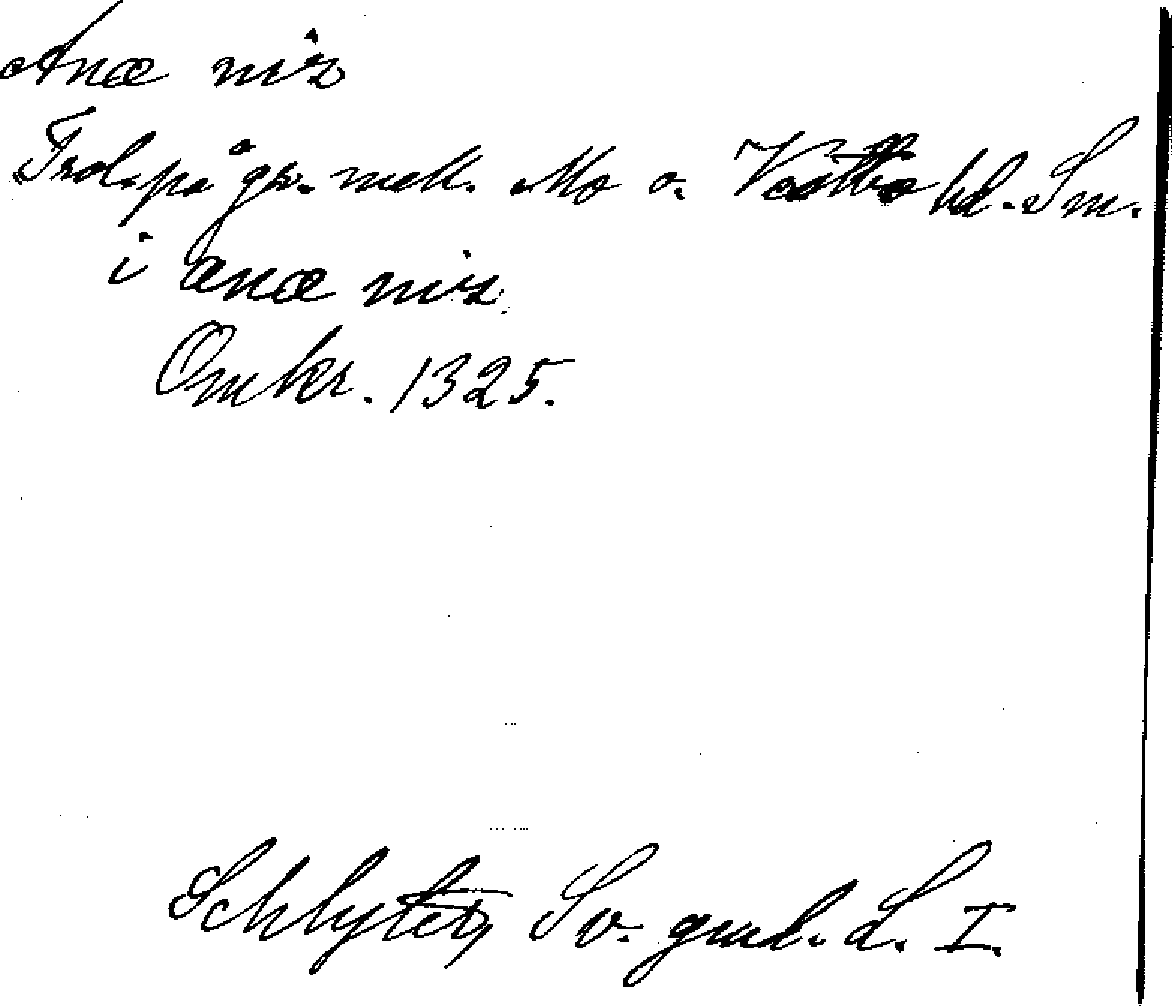 Anæ niz
Trol. på gr. mell. Mo o. Västbo hd. Sm.
i anæ niz
Omkr. 1325.
Schlyter, Sv. gml. L. I.